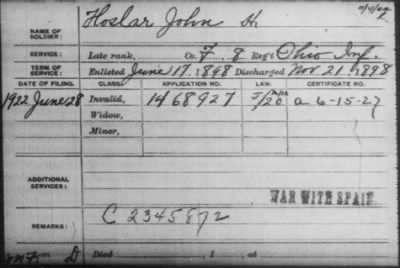 NAME OF SOLDIER: Hoslar John H.
SERVICE: Late rank, Co. F. 8 Reg't Ohio Inf.
TERM OF SERVICE: Enlisted June 17. 1898 Discharged Nov 21. 1898
DATE OF FILING. CLASS. APPLICATION NO. LAW. CERTIFICATE NO.
1922 June 28 Invalid, 1468927 a 6-15-27
Widow,
Minor,
ADDITIONAL SERVICES:
WAR WITH SPAIN
C 2345872
REMARKS:
Died , 1 , at